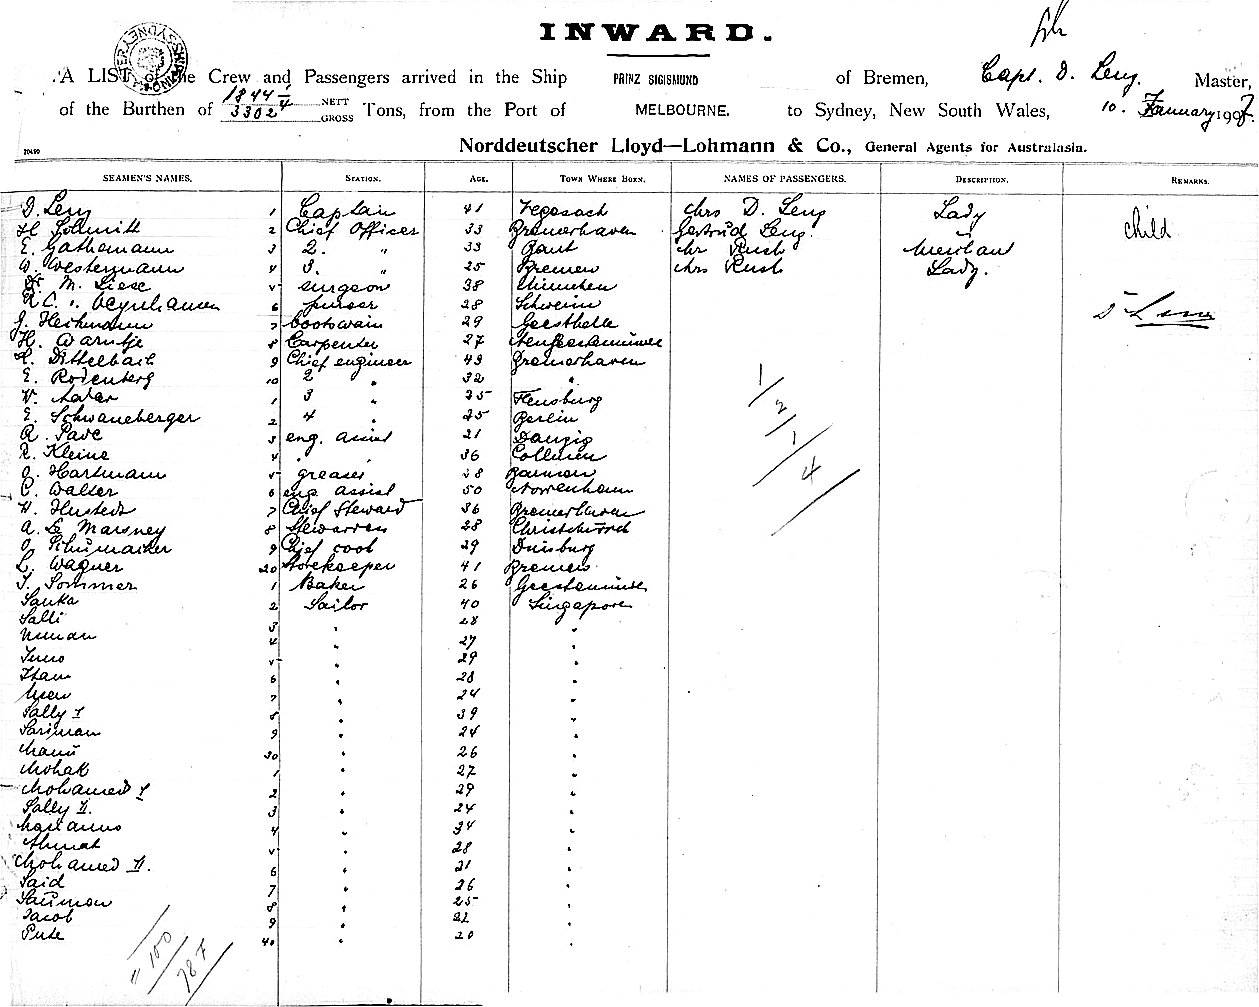 INWARD.
A LIST the Crew and Passengers arrived in the Ship PRINZ SIGISMUND of Bremen, Capt. D. Leny. Master,
of the Burthen of 1844 3302 NETT GROSS Tons, from the Port of MELBOURNE. to Sydney, New South Wales, 10. January 1907.
Norddeutscher Lloyd—Lohmann & Co., General Agents for Australasia.
SEAMEN'S NAMES. STATION. AGE. TOWN WHERE BORN. NAMES OF PASSENGERS. DESCRIPTION. REMARKS.
D. Leny 1 Captain 41 Vegesach Mrs D. Leny Lady
H. Schmitt 2 Chief Officer 33 Bremerhaven Gertrud Leny Child
E. Gathemann 3 2. " 33 Bant Mr Rush Merchant
W. Westermann 4 3. " 25 Bremen Mrs Rush Lady.
Dr. M. Liese 5 surgeon 38 München
6 purser 28 Schwerin
J. Heitmann 7 bootswain 29 Geesthelle
H. Warntje 8 Carpenter 27
H. Dittelbach 9 Chief engineer 43 Bremerhaven
E. Rodenberg 10 2 " 32 "
1 3 " 25 Flensburg
E. Schwaneberger 2 4 " 25 Berlin
R. Pade 3 eng. assist 21 Danzig
R. Kleine 4 " 36
O. Hartmann 5 greaser 28 Barmen
C. Walter 6 eng. assist 50 Norrenham
H. Hustedt 7 Chief Steward 36 Bremerhaven
A. Le Maisney 8 Stewardess 28 Christchurch
O. Schumacher 9 Chief cook 29 Duisburg
L. Wagner 20 Storekeeper 41 Bremen
T. Sommer 1 Baker 26 Geestemünde
Sanka 2 Sailor 40 Singapore
Salli 3 " 28 "
4 " 27 "
5 " 29 "
6 " 28 "
7 " 24 "
Sally I 8 " 39 "
Sariman 9 " 24 "
30 " 26 "
Mohak 1 " 27 "
Mohamed I 2 " 29 "
Sally II. 3 " 24 "
4 " 34 "
Ahmat 5 " 28 "
Mohamed II. 6 " 21 "
Said 7 " 26 "
8 " 25 "
Jacob 9 " 22 "
40 " 20 "
1/2/1/4
100/787